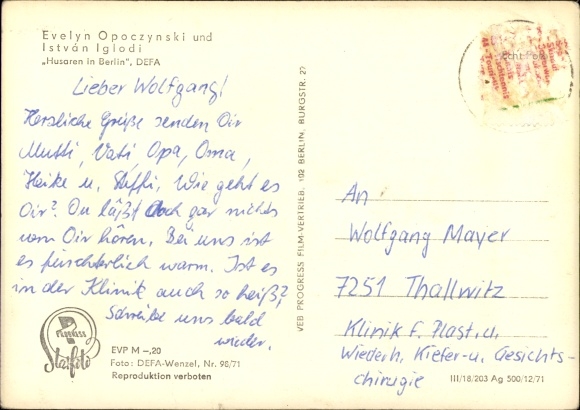 Evelyn Opoczynski und
István Iglodi
„Husaren in Berlin“, DEFA
Lieber Wolfgang!
Herzliche Grüße senden Dir
Mutti, Vati Opa, Oma,
Heike u. Steffi. Wie geht es
Dir? Du läßt doch gar nichts
von Dir hören. Bei uns ist
es fürchterlich warm. Ist es
in der Klinik auch so heiß?
Schreibe uns bald
wieder.
PROGRESS
Starfoto
EVP M –,20
Foto: DEFA-Wenzel, Nr. 98/71
Reproduktion verboten
VEB PROGRESS FILM-VERTRIEB, 102 BERLIN, BURGSTR. 27
An
Wolfgang Mayer
7251 Thallwitz
Klinik f. Plast. u.
Wiederh. Kiefer- u. Gesichts-
chirugie
III/18/203 Ag 500/12/71